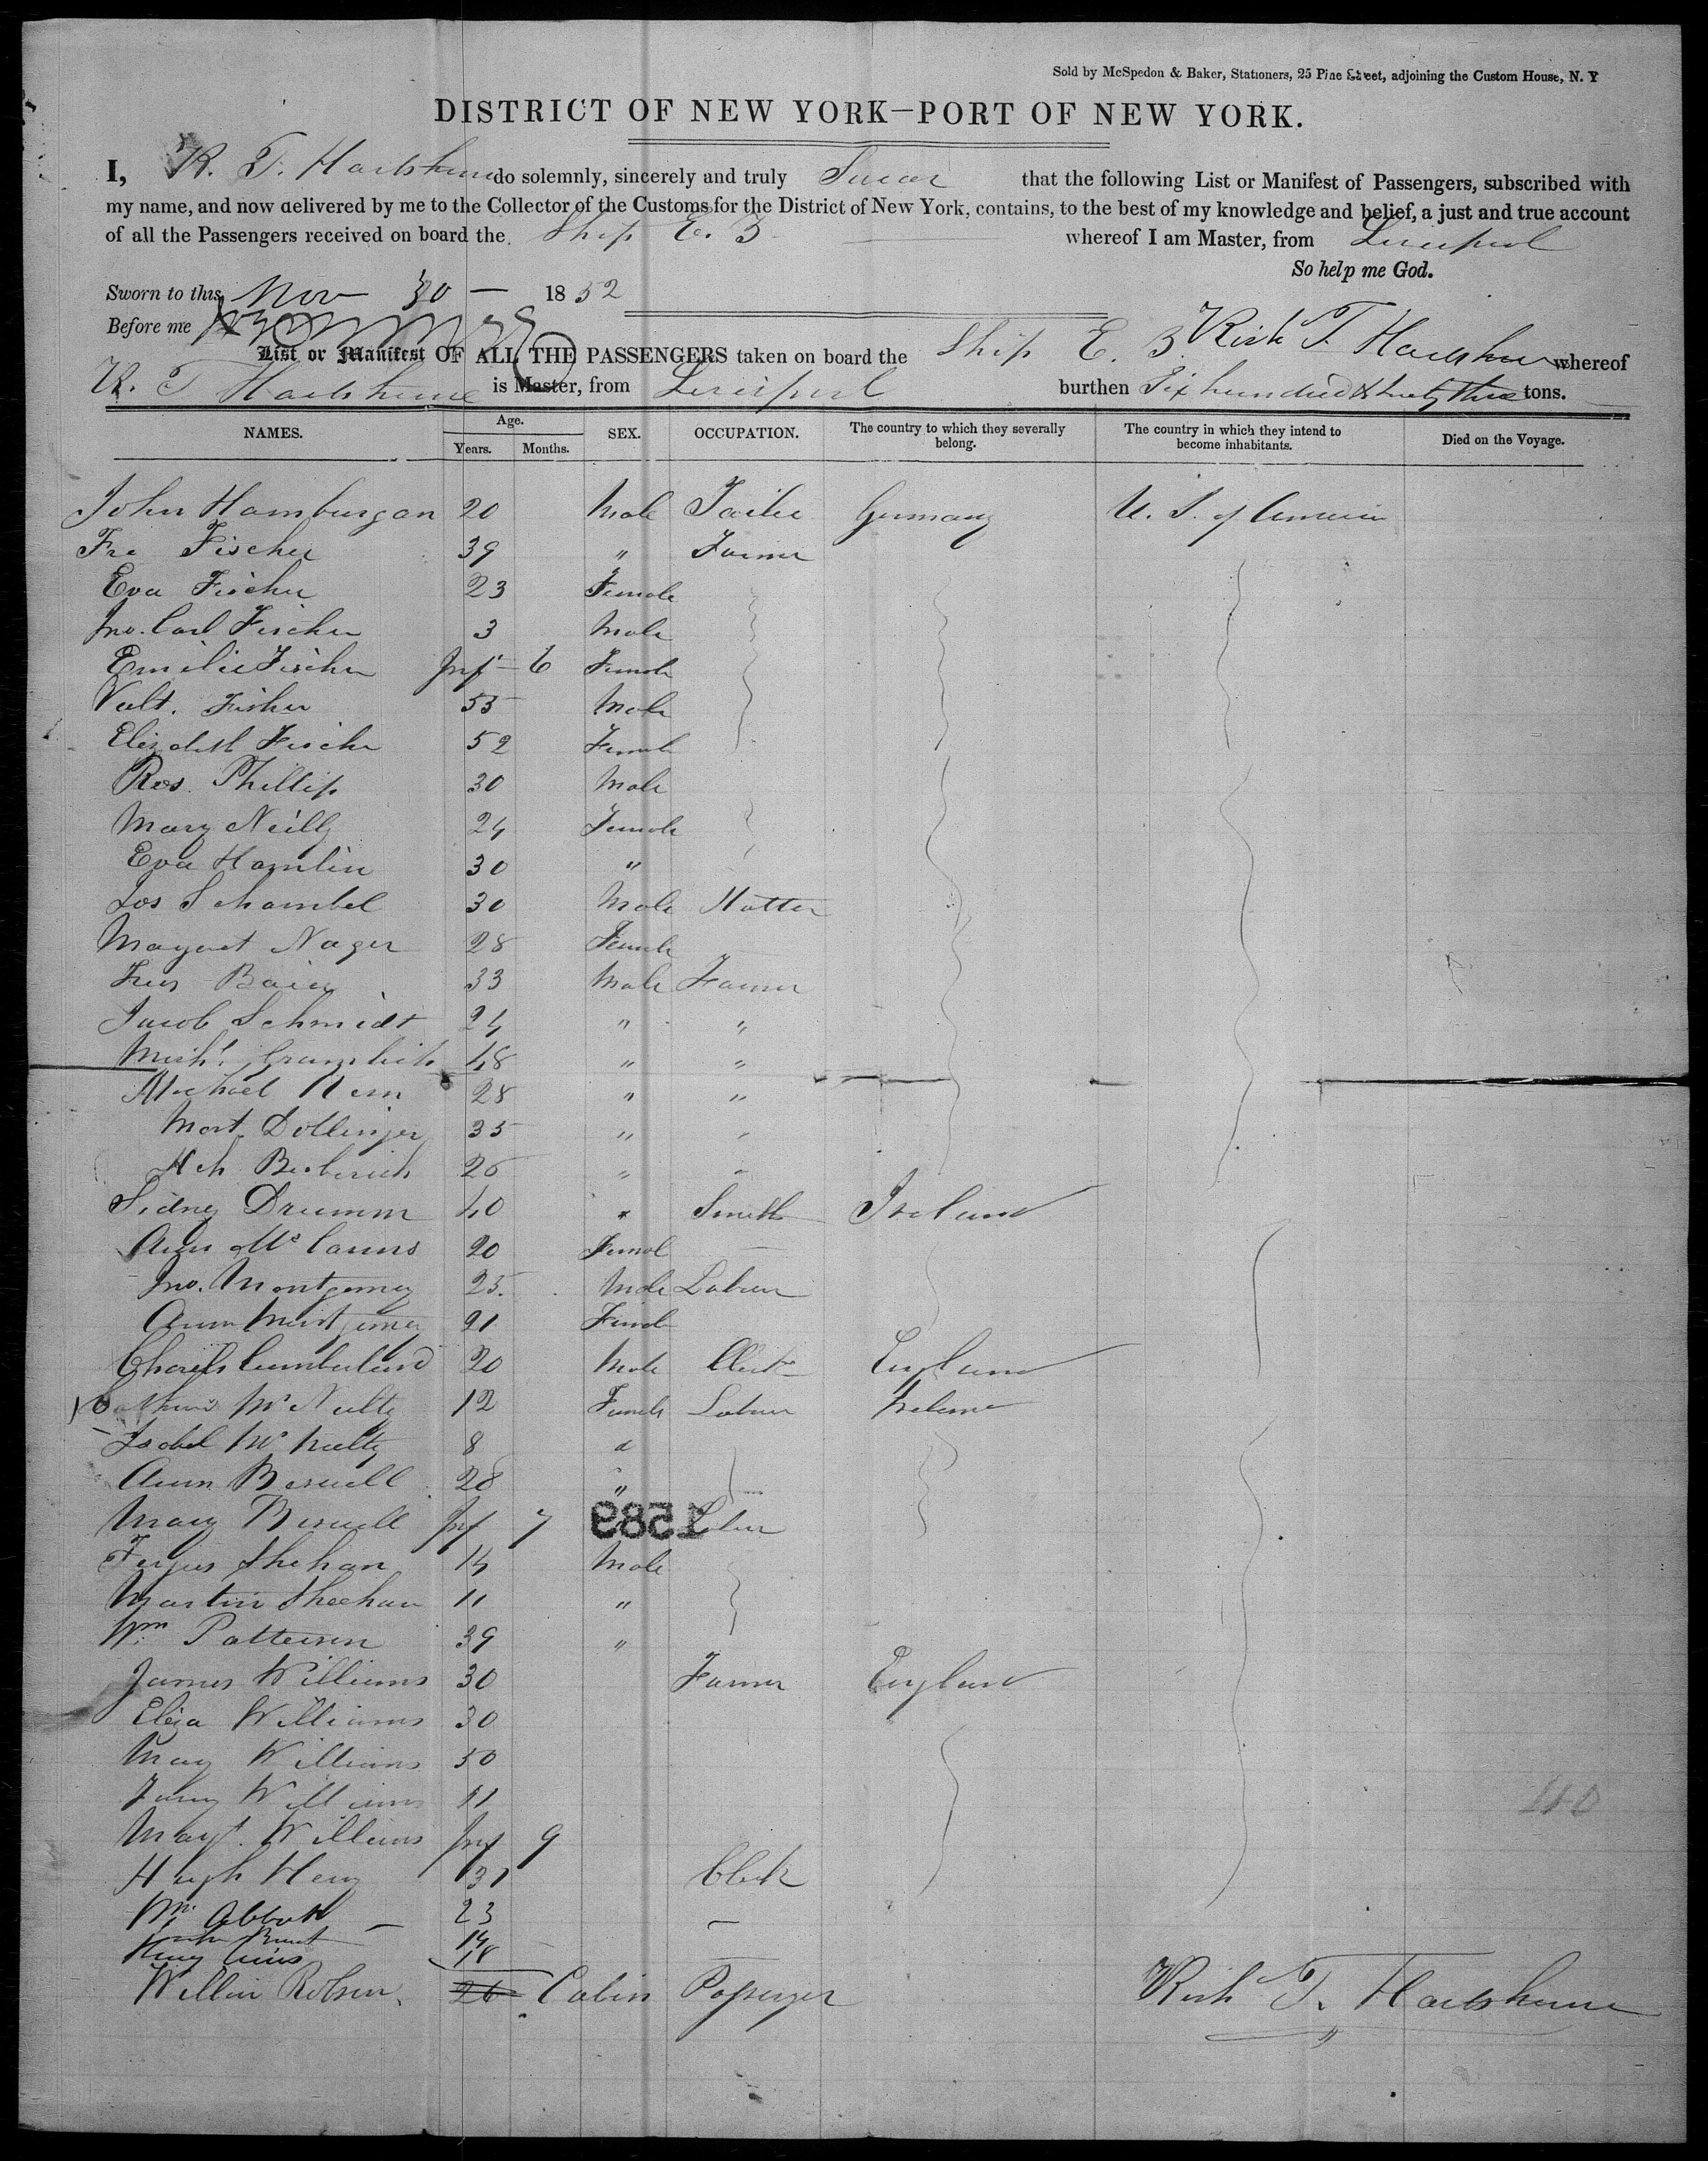 Sold by McSpedon & Baker, Stationers, 25 Pine Street, adjoining the Custom House, N. Y
DISTRICT OF NEW YORK—PORT OF NEW YORK.
I, R. T. Hartshorne do solemnly, sincerely and truly Swear that the following List or Manifest of Passengers, subscribed with
my name, and now delivered by me to the Collector of the Customs for the District of New York, contains, to the best of my knowledge and belief, a just and true account
of all the Passengers received on board the Ship E. Z whereof I am Master, from Liverpool
So help me God.
Sworn to this Nov 30 — 1852
Before me
Rich T. Hartshorne
List or Manifest OF ALL THE PASSENGERS taken on board the Ship E. Z. whereof
R. T Hartshorne is Master, from Liverpool burthen Six hundred & tons.
NAMES. Age. Years. Months. SEX. OCCUPATION. The country to which they severally belong. The country in which they intend to become inhabitants. Died on the Voyage.
John Hamburgan 20 Male Tailor Germany U. S. of America
Fre Fischer 39 " Farmer
Eva Fischer 23 Female
Jno. Carl Fischer 3 Male
Emilie Fischer Inf 6 Female
Valt. Fisher 55 Male
Elizabeth Fischer 52 Female
Ros. Phillip 30 Male
Mary Neilly 24 Female
Eva Hamlin 30 "
Jos Schambel 30 Male Hatter
Margaret Nager 28 Female
Baier 33 Male Farmer
Jacob Schmidt 24 " "
Mich! 48 " "
Michael Kern 28 " "
Mart. Dollinger 35 " "
Berberich 26 " "
Sidney Drumm 40 " Smith Ireland
Ann Mc 20 Femal
Jno. Montgomery 25. Male Labour
Ann Montgomery 21 Femal
Charles Cumberland 20 Male Clerk England
McNulty 12 Female Labour Ireland
Isabel McNulty 8 "
Ann Beswell 28 "
Mary Beswell Inf 7 Labour
1583
Fergus Shehan 14 Male
Martin Sheehan 11 "
Wm Patterson 39 "
James Williams 30 Farmer England
Eliza Williams 30
Mary Williams 50
Williams 11
Magt. Williams Inf 9
Hugh 31 Clerk
Wm Abbott — 23 —
14
Henry 18
William Robson. 26 Cabin Passenger
Rich T. Hartshorne